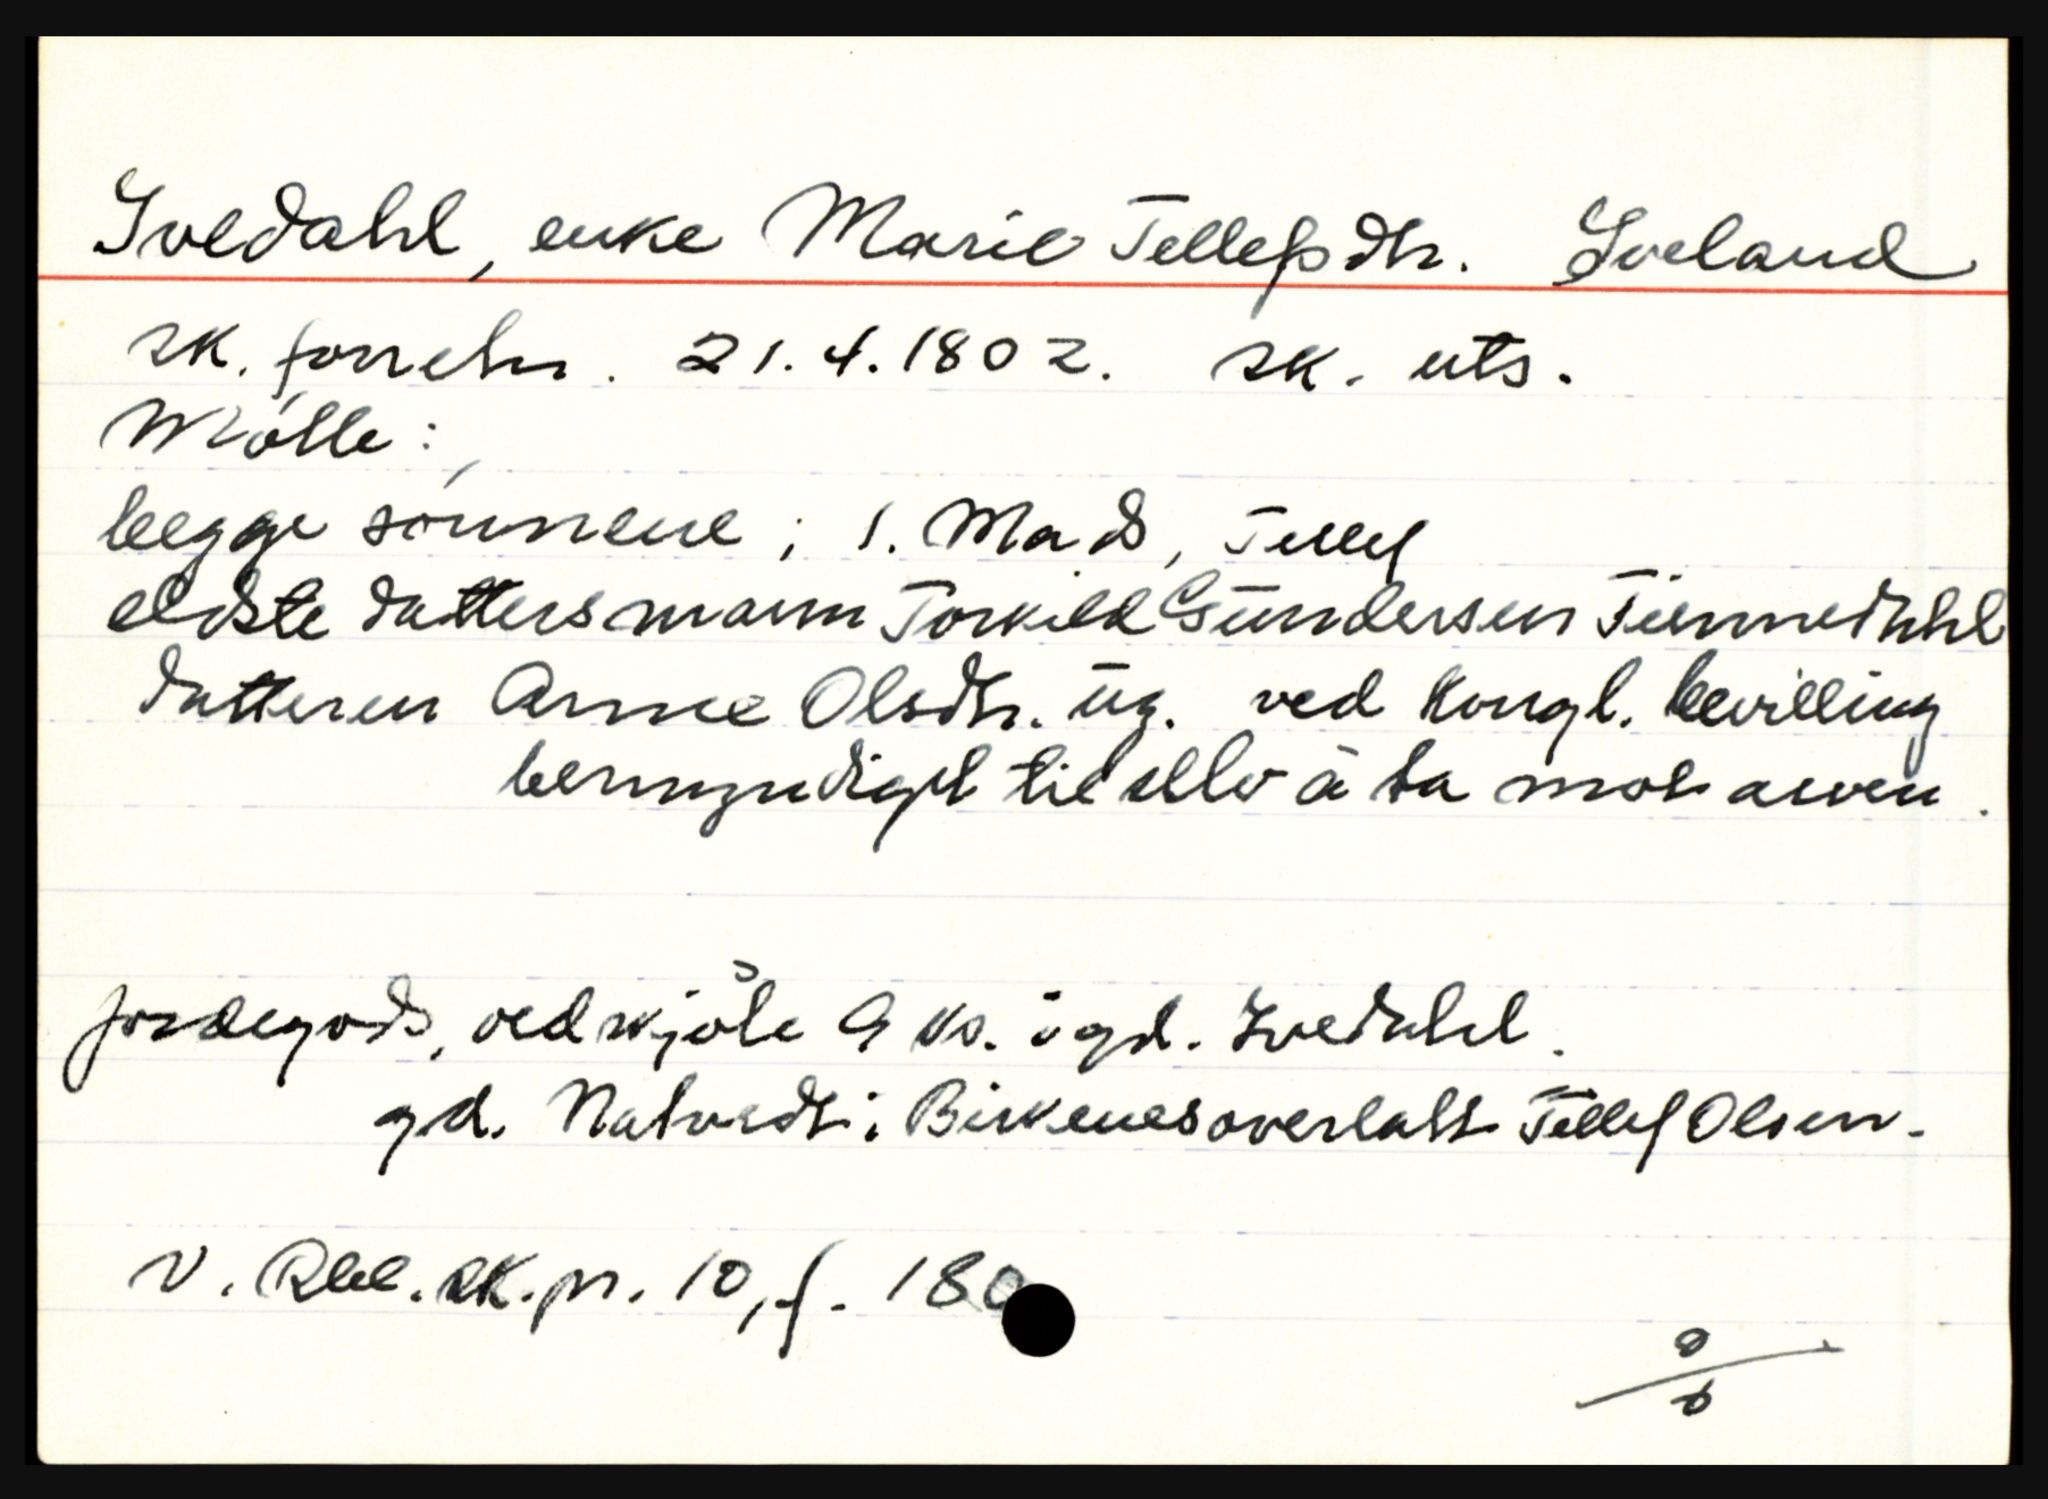 Ivedahl, enke Marie Tellefsdtr. Iveland
sk. forretn. 21.4.1802. sk. uts.
Møtte:
begge sønnene; s. Mads, Tellef
eldste datters mann Torkild Gundersen Tiennedahl
datteren Anne Olsdtr. ug. ved kongl. bevilling
bemyndiget til selv å ta mot arven.
jordegods, vedkjøle 9 ks. i gd. Ivedahl.
gd. Natvedt i Birkenes overlatt Tellef Olsen.
V. Rbl. sk.pr. 10, f. 180